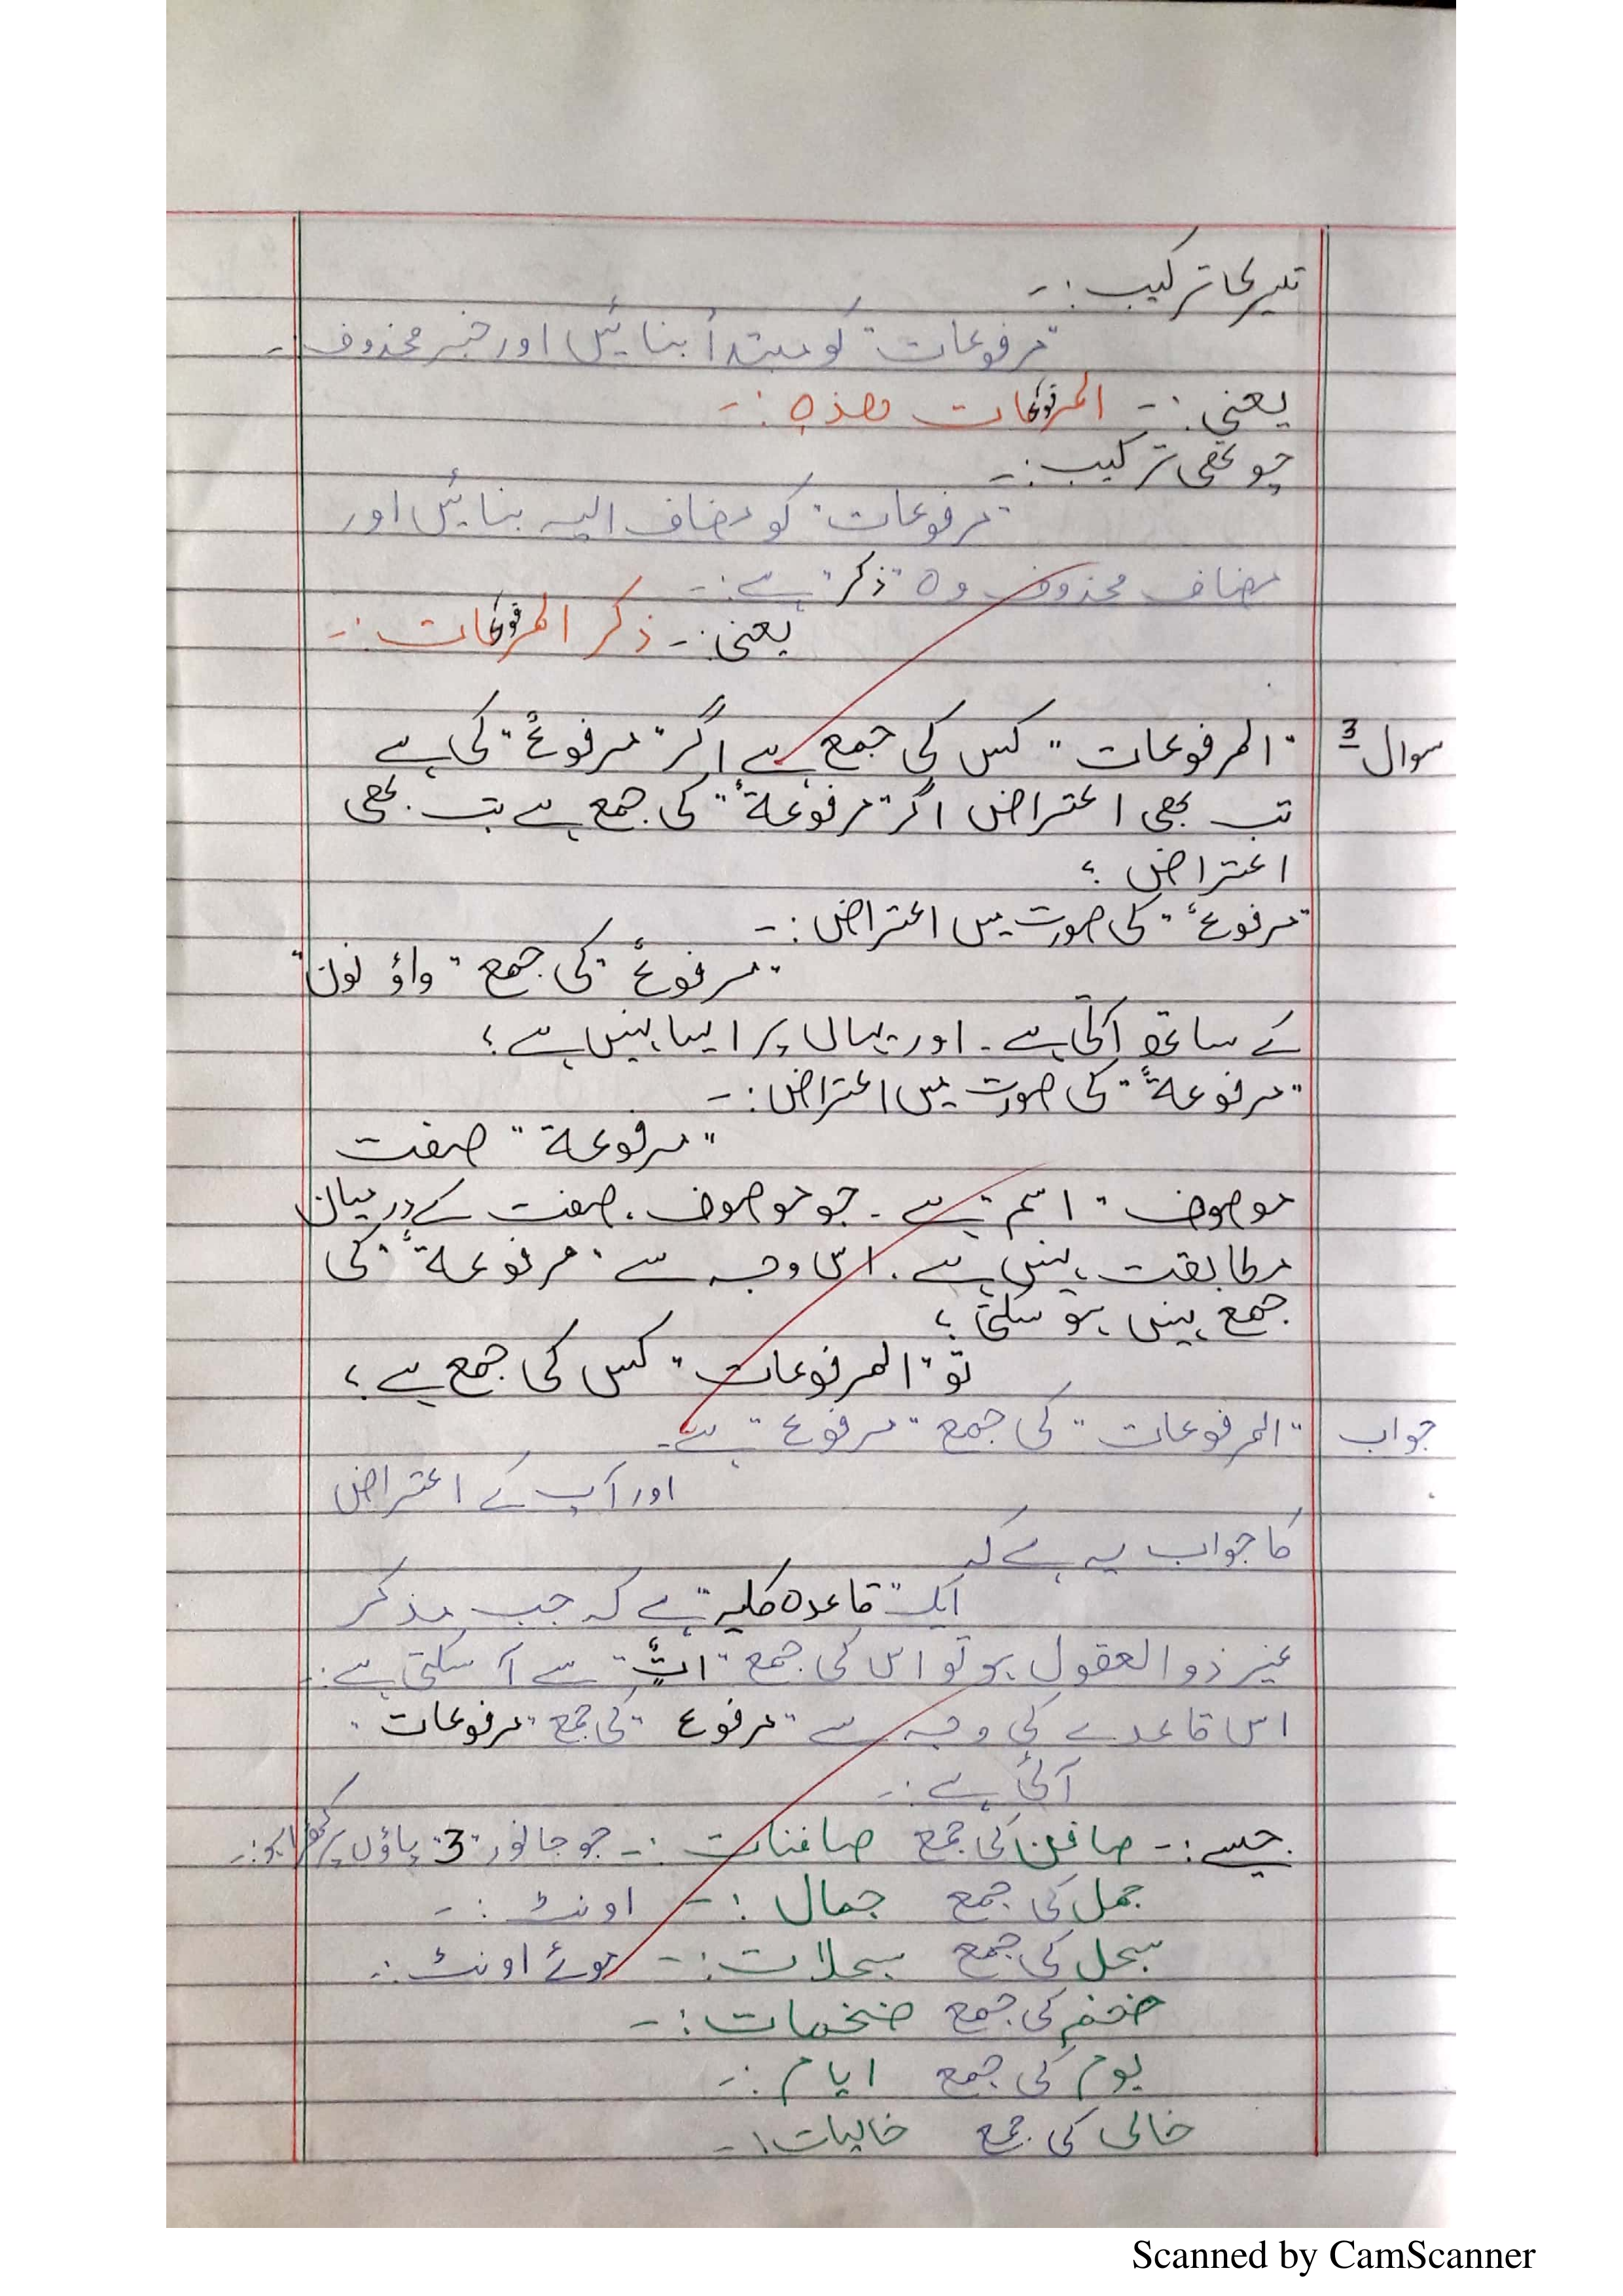 تیسری ترکیب :-
"مرفوعات" کو مبتدأ بنائیں اور خبر محذوف -
یعنی :- المرفوعات ھذہ :-
چوتھی ترکیب :-
"مرفوعات" کو مضاف الیہ بنائیں اور
مضاف محذوف وہ "ذکر" ہے :-
یعنی :- ذکر المرفوعات :-
سوال 3 "المرفوعات" کس کی جمع ہے اگر "مرفوعٌ" کی ہے
تب بھی اعتراض اگر "مرفوعۃٌ" کی جمع ہے تب بھی
اعتراض ؛
"مرفوعٌ" کی صورت میں اعتراض :-
"مرفوعٌ" کی جمع "واؤ نون"
کے ساتھ آتی ہے ۔ اور یہاں پر ایسا نہیں ہے ؛
"مرفوعۃٌ" کی صورت میں اعتراض :-
"مرفوعۃ" صفت
موصوف "اسم" ہے ۔ جو موصوف ، صفت کے درمیان
مطابقت نہیں ہے ۔ اس وجہ سے "مرفوعۃٌ" کی
جمع نہیں ہو سکتی ؛
تو "المرفوعات" کس کی جمع ہے ؛
جواب "المرفوعات" کی جمع "مرفوع" ہے ۔
اور آپ کے اعتراض
کا جواب یہ ہے کہ
ایک "قاعدہ کلیہ" ہے کہ جب مذکر
غیر ذو العقول ہو تو اس کی جمع "اتٌ" سے آ سکتی ہے :-
اس قاعدے کی وجہ سے "مرفوع" کی جمع "مرفوعات"
آئی ہے :-
جیسے :- صافن کی جمع صافنات :- جو جانور "3" پاؤں پر کھڑا ہو :-
جمل کی جمع جمال :- اونٹ :-
سبحل کی جمع سبحلات :- اونٹ :-
ضخم کی جمع ضخمات :-
یوم کی جمع ایام :-
خالی کی جمع خالیات :-
Scanned by CamScanner